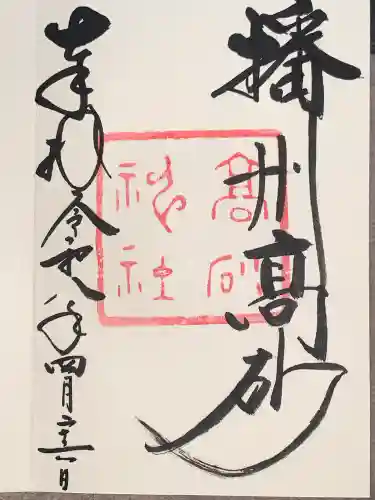 播州髙砂
髙砂神社
奉拝 令和八年四月二十一日